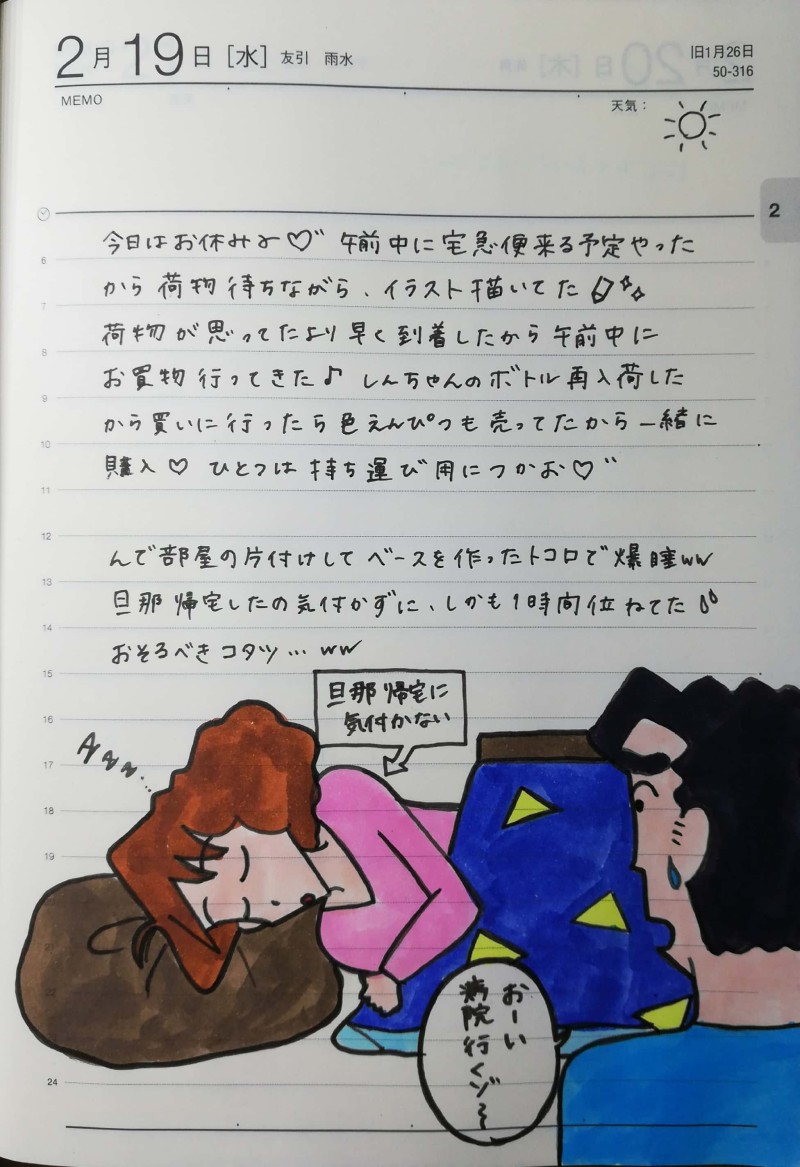 2月19日[水] 友引 雨水
旧1月26日
50-316
MEMO
天気：
2
今日はお休み〜♡” 午前中に宅急便来る予定やった
から荷物待ちながら、イラスト描いてた
荷物が思ってたより早く到着したから午前中に
お買物行ってきた♪ しんちゃんのボトル再入荷した
から買いに行ったら色えんぴつも売ってたから一緒に
購入♡ ひとつは持ち運び用につかお♡”
んで部屋の片付けしてベースを作ったトコロで爆睡ww
旦那帰宅したの気付かずに、しかも1時間位ねてた
おそろべきコタツ…ww
旦那帰宅に
気付かない
zzz...
おーい
病院行くゾ〜
6
7
8
9
10
11
12
13
14
15
16
17
18
19
24